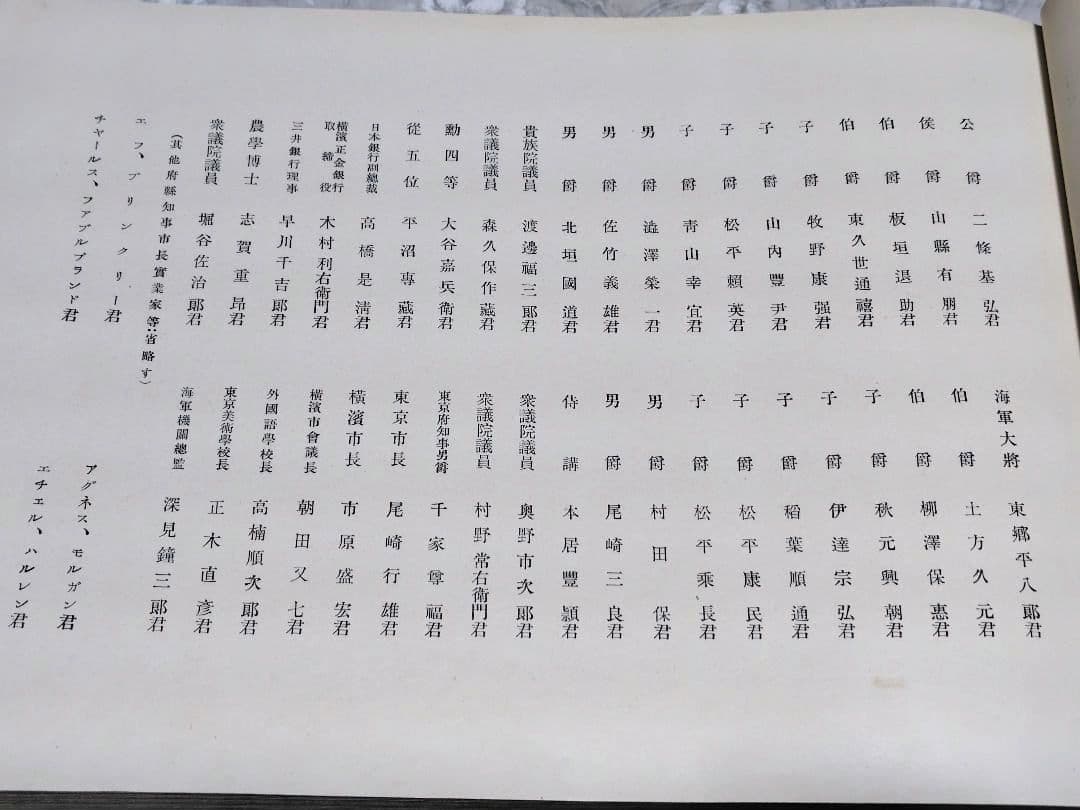 公爵 二條基弘君
侯爵 山縣有朋君
伯爵 板垣退助君
伯爵 東久世通禧君
子爵 牧野康强君
子爵 山內豐尹君
子爵 松平賴英君
子爵 靑山幸宜君
男爵 澁澤榮一君
男爵 佐竹義雄君
男爵 北垣國道君
貴族院議員 渡邊福三郞君
衆議院議員 森久保作藏君
勳四等 大谷嘉兵衞君
從五位 平沼專藏君
日本銀行副總裁 高橋是淸君
橫濱正金銀行取締役 木村利右衞門君
三井銀行理事 早川千吉郞君
農學博士 志賀重昂君
衆議院議員 堀谷佐治郞君
(其他府縣知事市長實業家等:省略す)
エフ、ブリンクリー君
チャールス、ファブルブランド君
海軍大將 東鄕平八郞君
伯爵 土方久元君
伯爵 柳澤保惠君
子爵 秋元興朝君
子爵 伊達宗弘君
子爵 稻葉順通君
子爵 松平康民君
子爵 松平乘長君
男爵 村田保君
男爵 尾崎三良君
侍講 本居豐穎君
衆議院議員 奧野市次郞君
衆議院議員 村野常右衞門君
東京府知事男爵 千家尊福君
東京市長 尾崎行雄君
橫濱市長 市原盛宏君
橫濱市會議長 朝田又七君
外國語學校長 高楠順次郞君
東京美術學校長 正木直彥君
海軍機關總監 深見鐘三郞君
アグネス、モルガン君
エチェル、ハルレン君